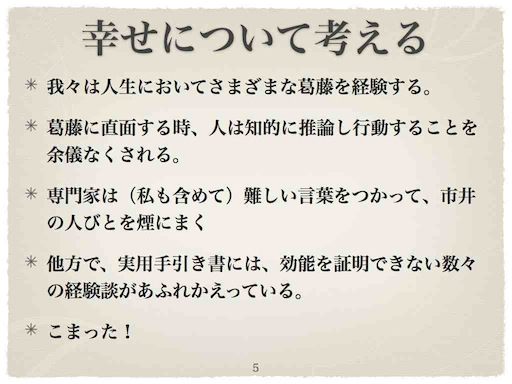 幸せについて考える
我々は人生においてさまざまな葛藤を経験する。
葛藤に直面する時、人は知的に推論し行動することを
余儀なくされる。
専門家は（私も含めて）難しい言葉をつかって、市井
の人びとを煙にまく
他方で、実用手引き書には、効能を証明できない数々
の経験談があふれかえっている。
こまった！
5